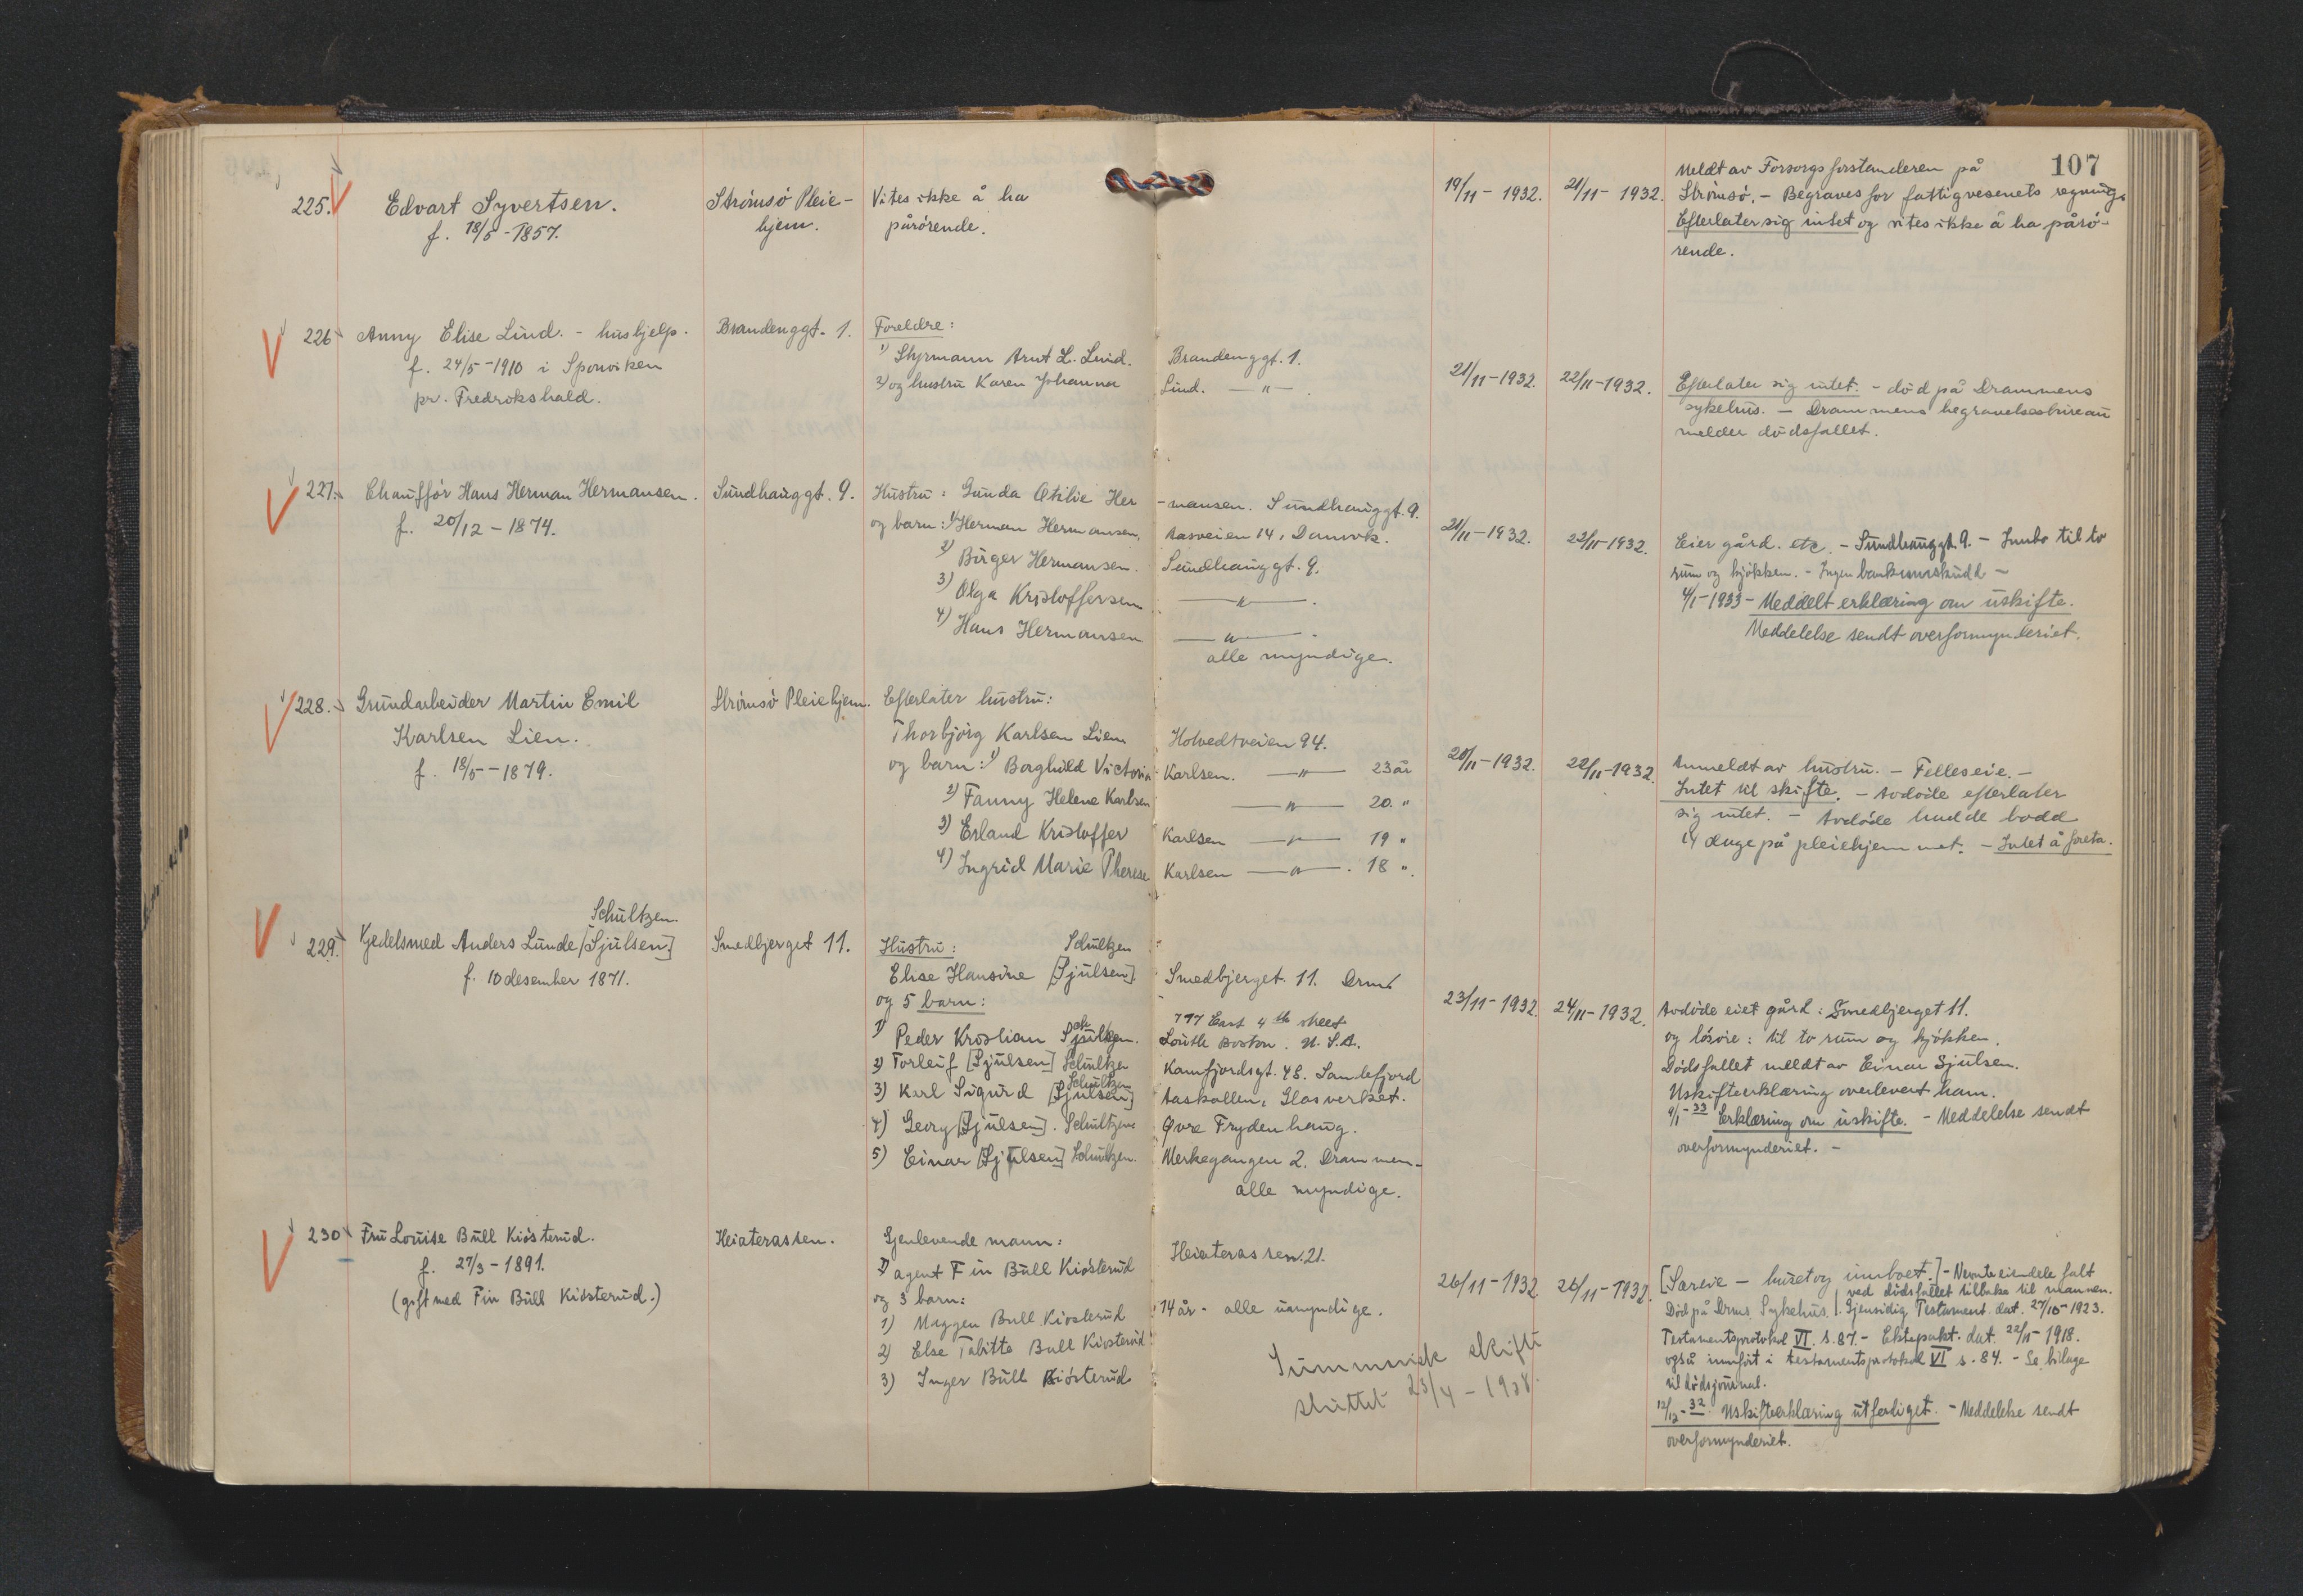 107
225. Edvart Syvertsen.
f. 18/5 - 1857.
Strömsö Pleie-
hjem.
Vites ikke å ha
pårörende.
19/11 - 1932. 21/11 - 1932.
Meldt av Forsorgsforstanderen på
Strömsö. - Begraves for fattigvesenets regning.
Efterlater sig intet og vites ikke å ha pårö-
rende.
226 Anny Elise Lund. - hushjelp.
f. 24/5 - 1910 i Sponviken
pr. Fredrikshald.
Brandenggt. 1.
Foreldre:
1) Styrmann Arnt L. Lund. Brandenggt. 1.
2) og hustru Karen Johanna Lund. — " —
21/11 - 1932. 22/11 - 1932.
Efterlater sig intet. - död på Drammens
sykehus. - Drammens begravelsesbureau
melder dödsfallet.
227. Chaufför Hans Herman Hermansen.
f. 20/12 - 1874.
Sundhauggt. 9.
Hustru: Gunda Otilie Her-mansen. Sundhauggt. 9.
og barn: 1) Herman Hermansen. Aasveien 14,
2) Birger Hermansen. Sundhauggt. 9.
3) Olga Kristoffersen — " — .
4) Hans Hermansen — " — .
alle myndige.
21/11 - 1932. 22/11 - 1932.
Eier gård. etc. - Sundhauggt. 9. - Innbo til to
rum og kjökken. - Ingen bankinnskudd -
4/1 - 1933 - Meddelt erklæring om uskifte.
Meddelelse sendt overformynderiet.
228. Grundarbeider Martin Emil
Karlsen Lien.
f. 18/5 - 1879.
Strömsö Pleiehjem.
Efterlater hustru:
Thorbjörg Karlsen Lien Holvedtveien 94.
og barn: 1) Borghild Victoria Karlsen. — " — 23 år
2) Fanny Helene Karlsen — " — 20. "
3) Erland Kristoffer Karlsen — " — 19 "
4) Ingrid Marie Therese Karlsen — " — . 18 ".
20/11 - 1932. 22/11 - 1932.
Anmeldt av hustru. - Felleseie. -
Intet til skifte. - Avdöde efterlater
sig intet. - Avdöde hadde bodd
14 dage på pleiehjemmet. - Intet å foreta.
Schultzen.
229. Kjedelsmed Anders Lunde [Sjulsen]
f. 10 desember 1871.
Smedbjerget 11.
Hustru: Schultzen
Elise Hansine [Sjulsen] Smedbjerget. 11. Drm.
og 5 barn:
1) Peder Kristian Schultzen. 777 East 4th street
South Boston. U.S.A.
2) Torleif [Sjulsen] Schultzen Kamfjordsgt. 48. Sandefjord
Schultzen
3) Karl Sigurd [Sjulsen] Aaskollen, Glasverket.
4) Georg [Sjulsen]. Schultzen Øvre Frydenhaug.
5) Einar [Sjulsen] Schultzen. Merkegangen 2. Drammen -
alle myndige.
23/11 - 1932 24/11 - 1932.
Avdöde eiet gård: Smedbjerget 11.
og lösöre: til to rum og kjökken.
Dödsfallet meldt av Einar Sjulsen.
Uskifteerklæring overlevert ham.
9/1 - 33 Erklæring om uskifte. - Meddelelse sendt
overformynderiet. -
230 Fru Louise Bull Kiösterud.
f. 27/3 - 1891.
(gift med Fin Bull Kiösterud.)
Heiaterassen.
Gjenlevende mann:
agent Fin Bull Kiösterud Heiaterassen. 21.
og 3 barn:
1) Bull Kiösterud 14 år - alle umyndige.
2) Else Tabitta Bull Kiösterud
3) Inger Bull Kiösterud
Summarisk skifte
sluttet 23/4 - 1938.
26/11 - 1932 26/11 - 1932.
[Særeie - huset og innboet.] - Nevnte eiendele falt
ved dödsfallet tilbake til mannen.
Död på Drms. Sykehus. Gjensidig Testament. dat. 27/10 - 1923.
Testamentsprotokol VI. s. 87. - Ektepakt. dat. 22/11 1918.
også innfört i testamentsprotokol VI s. 84. - Se bilage
til dödsjournal.
12/12 - 32. Uskifteerklæring utferdiget. - Meddelelse sendt
overformynderiet.